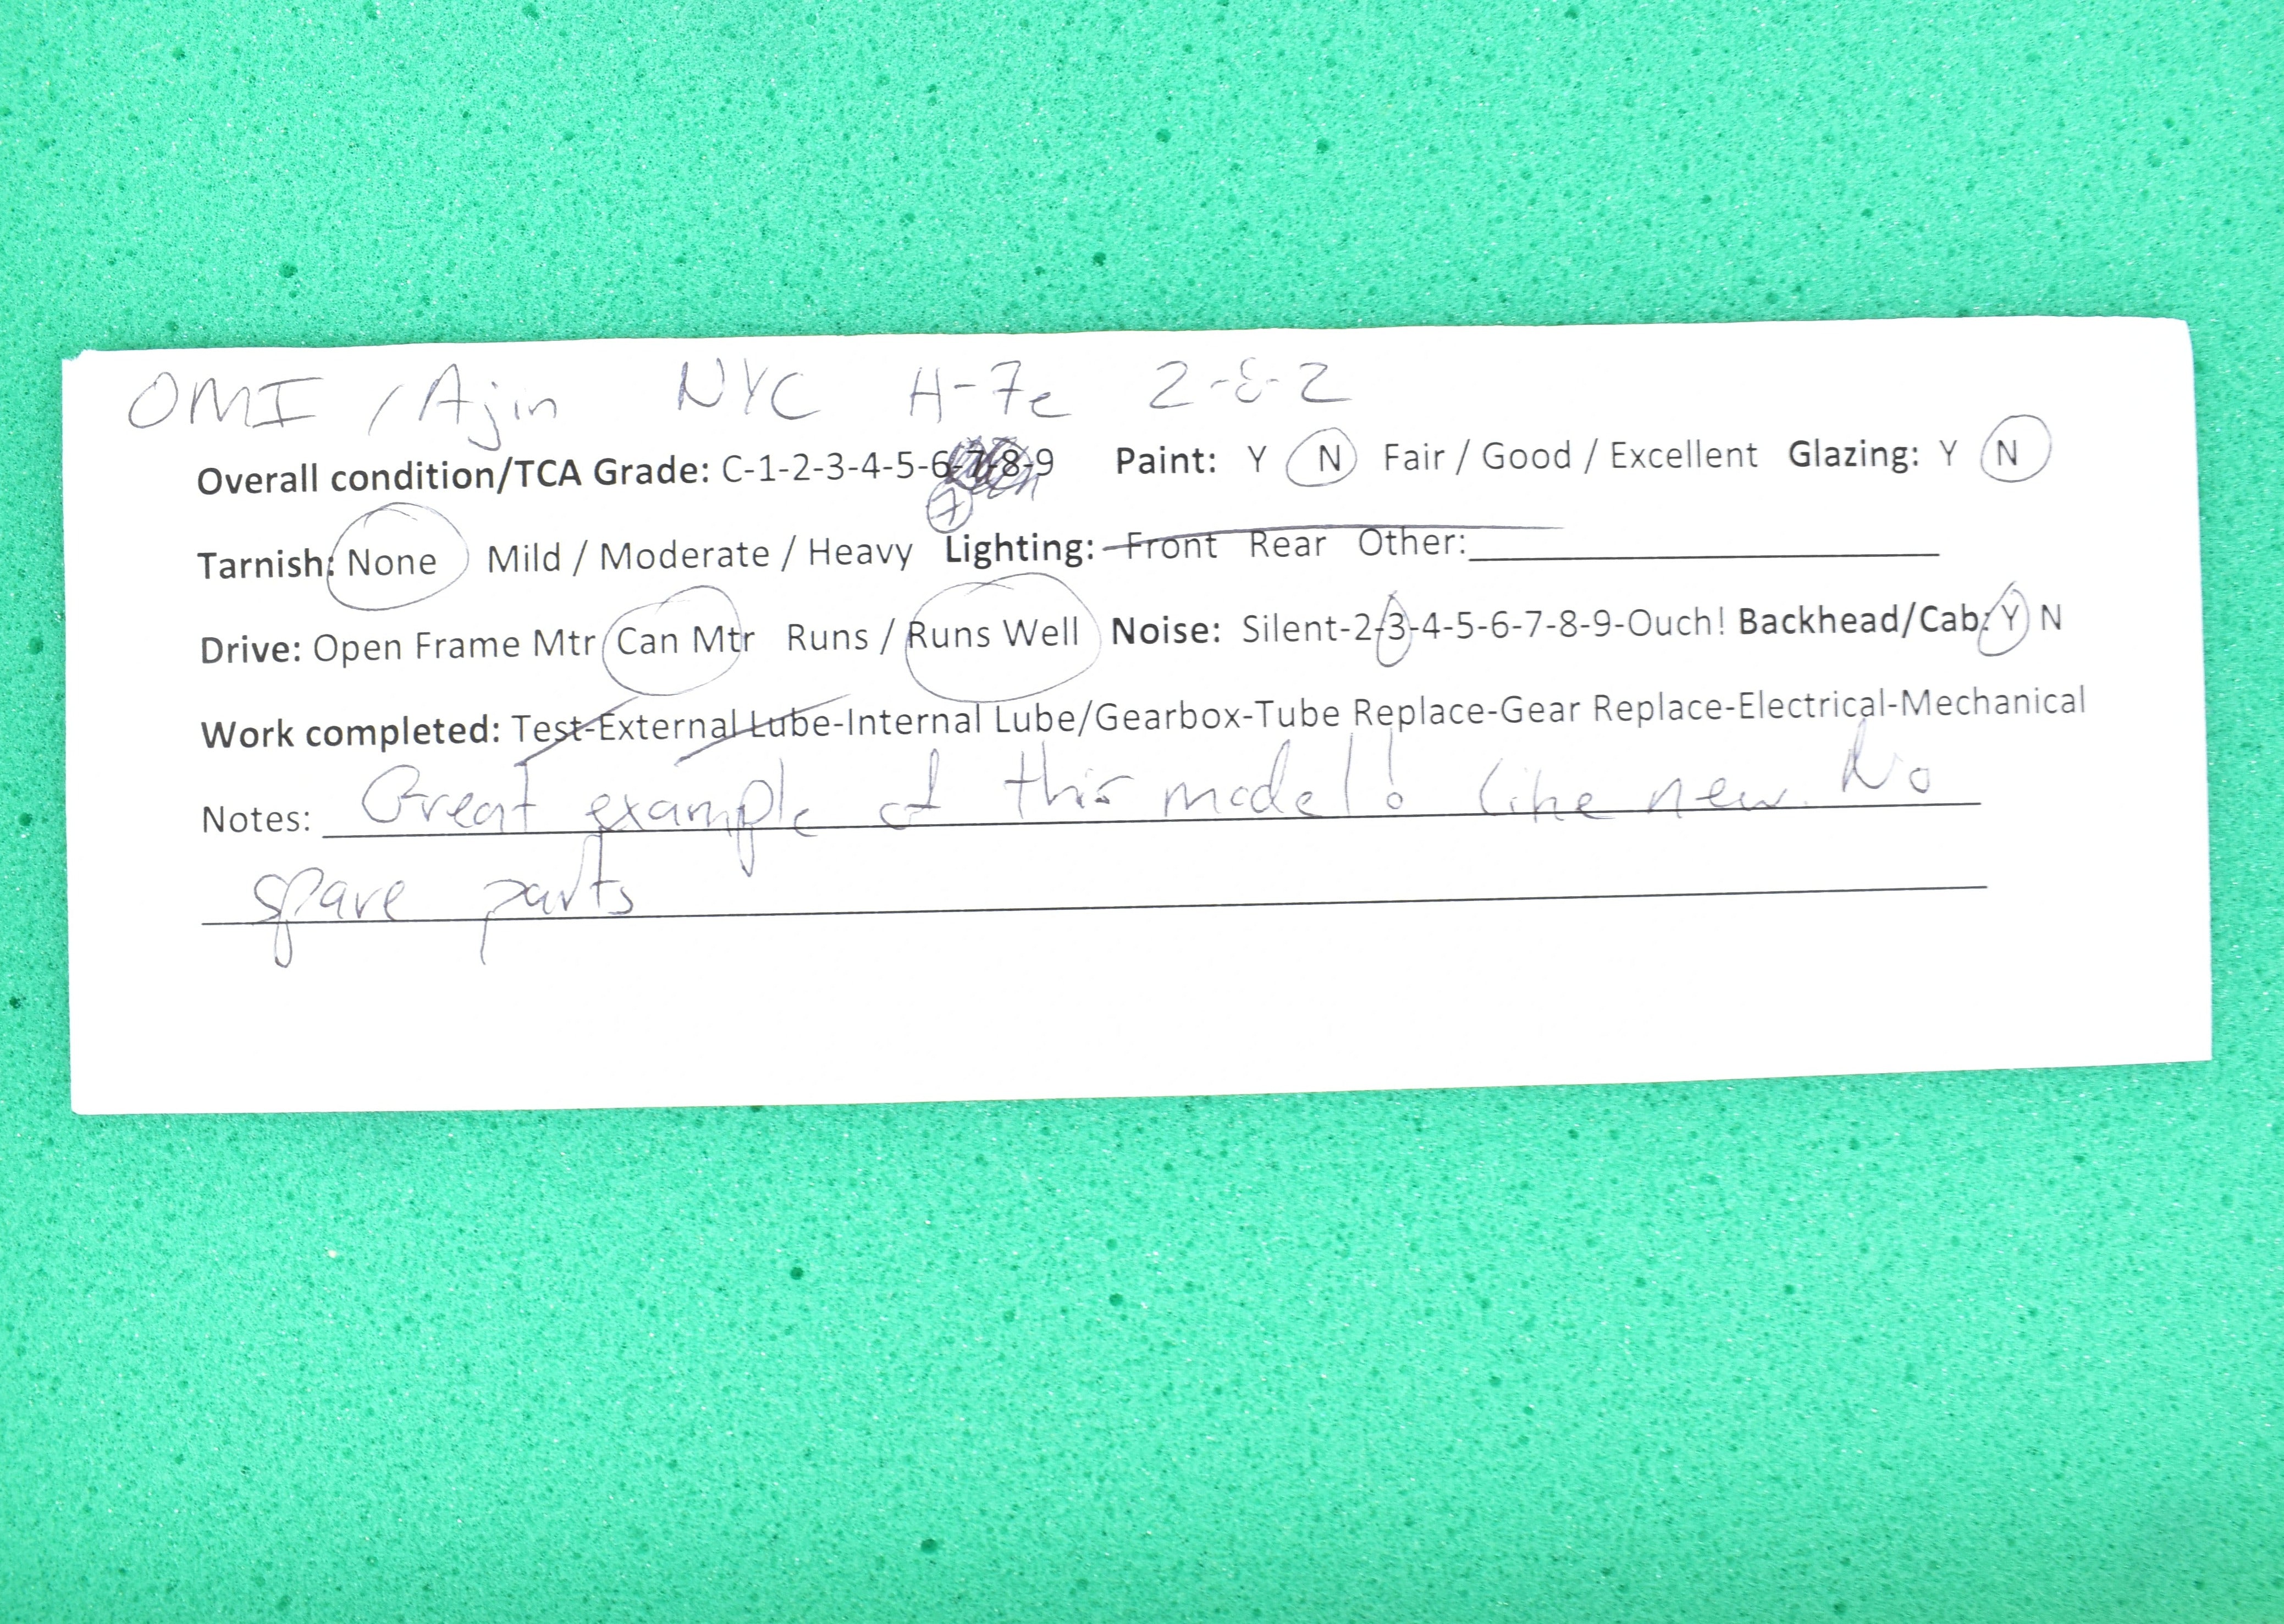 OMI / Ajin NYC H-7e 2-8-2
Overall condition/TCA Grade: C-1-2-3-4-5-6-7-8-9 Paint: Y N Fair / Good / Excellent Glazing: Y N
7
Tarnish: None Mild / Moderate / Heavy Lighting: Front Rear Other:
Drive: Open Frame Mtr Can Mtr Runs / Runs Well Noise: Silent-2-3-4-5-6-7-8-9-Ouch! Backhead/Cab: Y N
Work completed: Test-External Lube-Internal Lube/Gearbox-Tube Replace-Gear Replace-Electrical-Mechanical
Notes: Great example of this model! Like new. No
spare parts